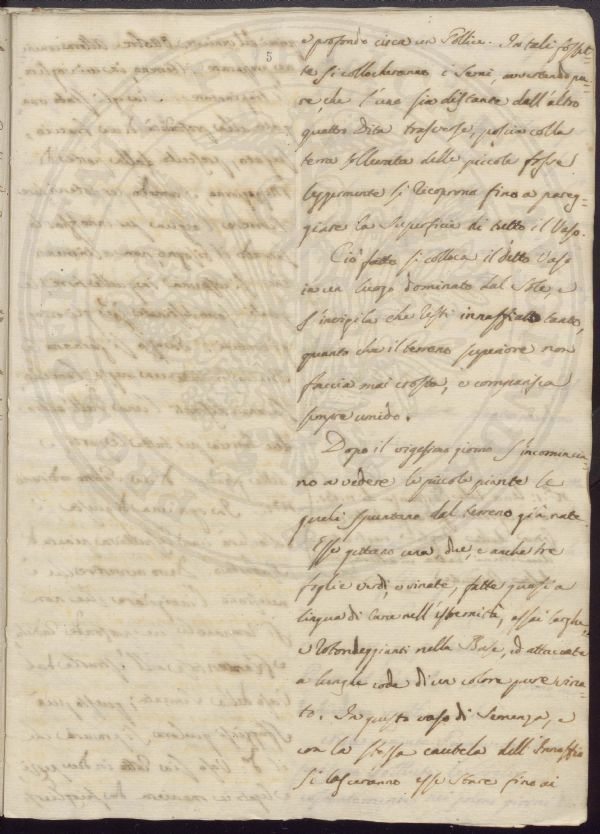 5
e profondo circa un Pollice. In tali fosset=
te si collocheranno i Semi, avvertendo pe=
rò, che l'uno sia distante dall'altro
quattro Dita trasverse, poscia colla
terra sollevata delle piccole fosse
leggermente si ricoprono fino a pareg=
giare la Superficie di tutto il Vaso.
Ciò fatto si colloca il detto Vaso
in un luogo dominato dal Sole, e
s'invigila che resti innaffiato tanto,
quanto che il terreno superiore non
faccia mai crosta, e comparisca
sempre umido.
Dopo il vigesimo giorno s'incomincia=
no a vedere le piccole piante le
quali spuntano dal terreno già nate.
Esse gettano una, due, e anche tre
foglie verdi, o vinate, fatte quasi a
lingua di Cane nell'estremità, assai larghe,
e rotondeggianti nella Base, ed attaccate
a lunga coda di un colore pure vina=
to. In questo vaso di Semenza, e
con la stessa cautela dell'Innaffio
si lasceranno esse stare fino ai